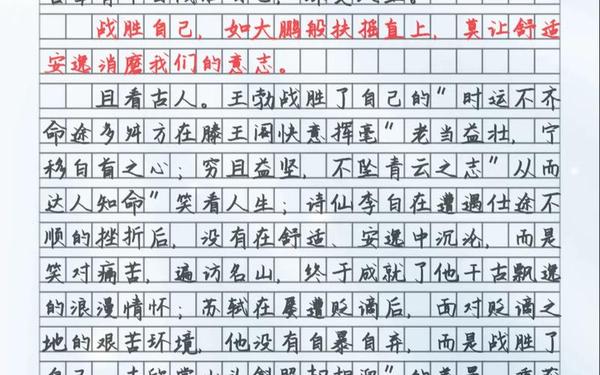 战胜自己，如大鹏般扶摇直上，莫让舒适
安逸消磨我们的意志。
且看古人。王勃战胜了自己的"时运不齐
命途多舛方在滕王阁快意挥毫"老当益壮，宁
移白首之心；穷且益坚，不坠青云之志"从而
达人知命"笑看人生；诗仙李白在遭遇仕途不
顺的挫折后，没有在舒适、安逸中沉沦，而是
笑对痛苦，遍访名山，终于成就了他千古飘逸
的浪漫情怀；苏轼在屡遭贬谪后，面对贬谪之
地的艰苦环境，他没有自暴自弃，而是战胜了